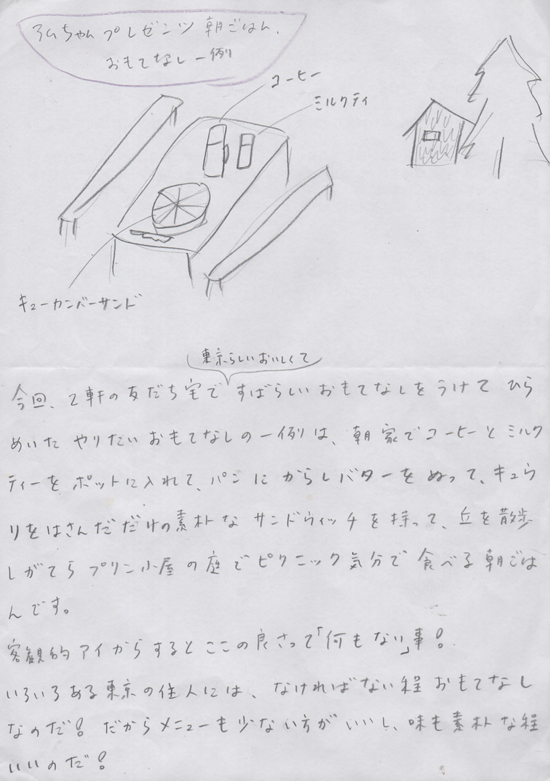 ラムちゃんプレゼンツ 朝ごはん、
おもてなし一例
コーヒー
ミルクティ
キューカンバーサンド
東京らしいおいしくて
今回、2軒の友だち宅ですばらしいおもてなしをうけて ひら
めいた やりたいおもてなしの一例は、朝家でコーヒーとミルク
ティーをポットに入れて、パンにからしバターをぬって、キュウ
リをはさんだだけの素朴なサンドウィッチを持って、丘を散歩
しがてらプリン小屋の庭でピクニック気分で食べる朝ごは
んです。
客観的アイからするとここの良さって「何もない」事!
いろいろある東京の住人には、なければない程おもてなし
なのだ!だからメニューも少ない方がいいし、味も素朴な程
いいのだ!